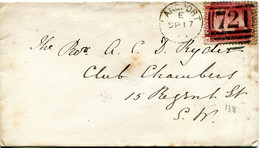 LANGPORT
E
SP 17
721
The Rev. A. C. D. Ryder
Club Chambers
15 Regent St
S. W
138